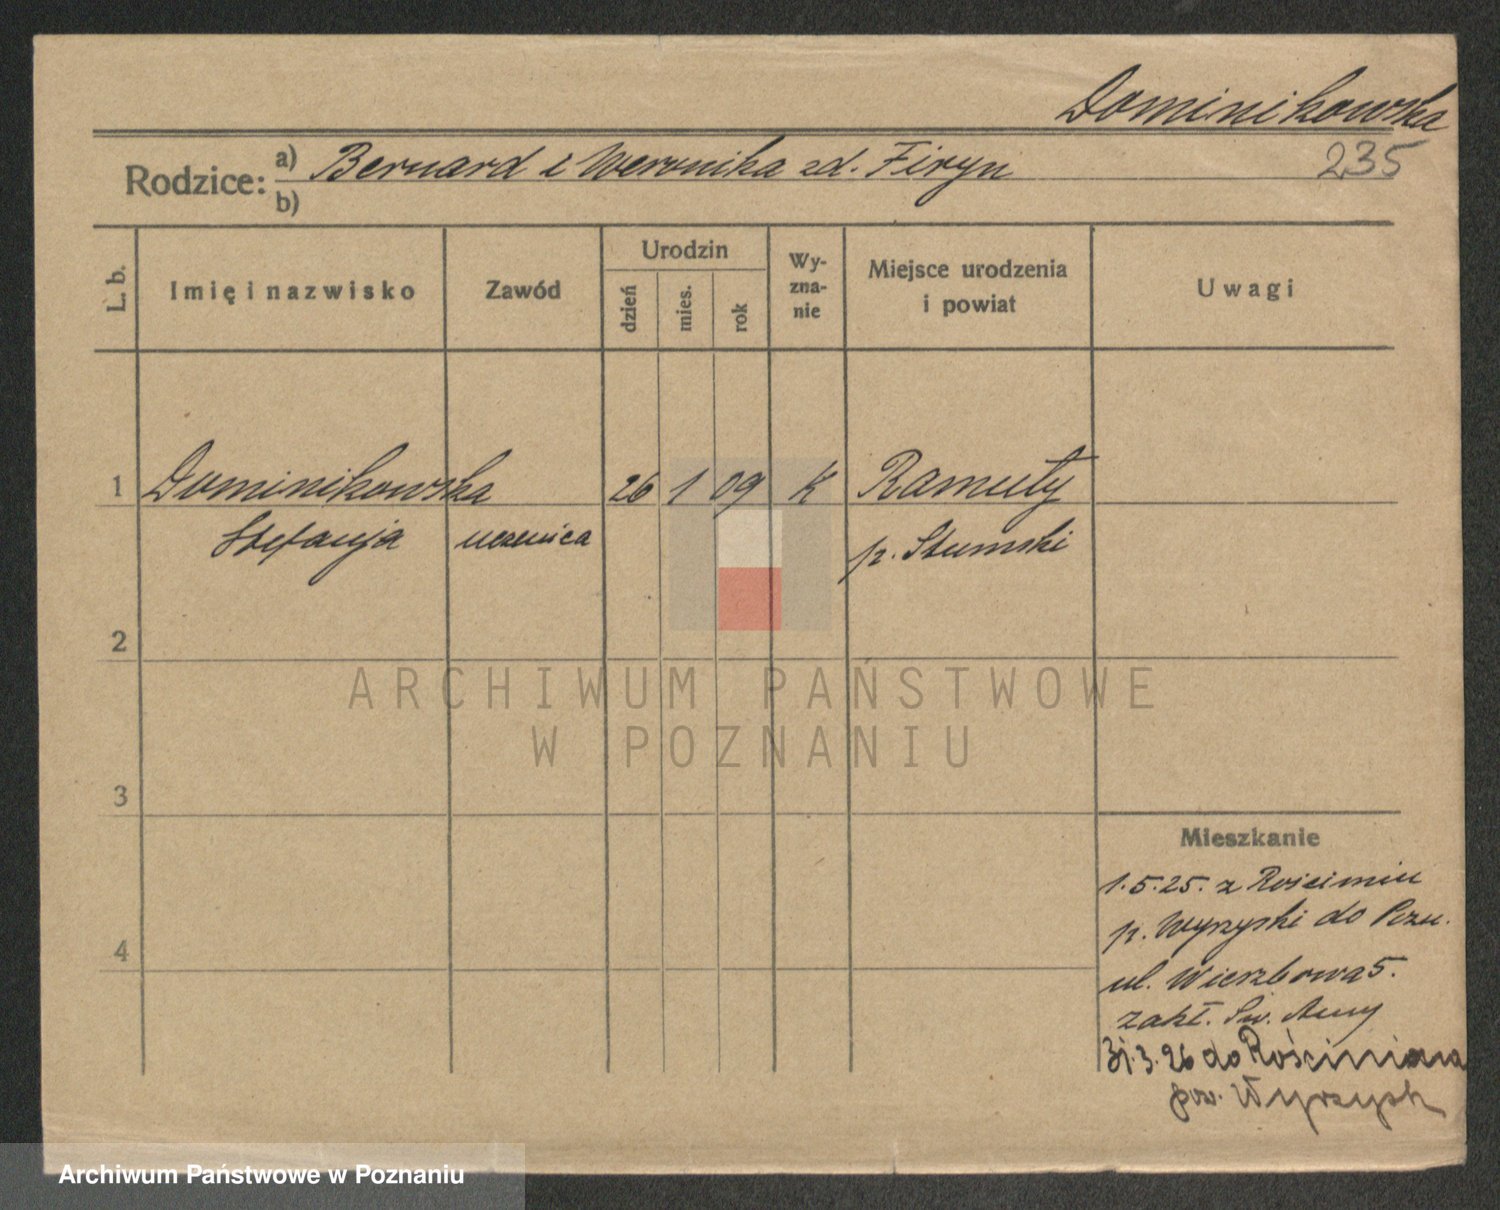 Dominikowska
235
Rodzice: a) Bernard i Weronika zd. Firyn
b)
L. b.
Imię i nazwisko
Zawód
Urodzin
dzień
mies.
rok
Wy-
zna-
nie
Miejsce urodzenia
i powiat
Uwagi
1 Dominikowska 26 1 09 K Ramuty
Stefanja uczenica p. Stumski
2
ARCHIWUM PAŃSTWOWE
W POZNANIU
3
Mieszkanie
1.5.25. z Rościmin
p. Wyrzyski do Pozn.
4
ul. Wierzbowa 5.
zakł. Św. Anny
31.3.26 do Rościmina
pow. Wyrzysk
Archiwum Państwowe w Poznaniu